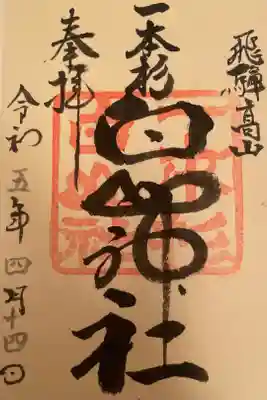 飛騨高山
一本杉
白山神社
奉拝
令和五年四月十四日